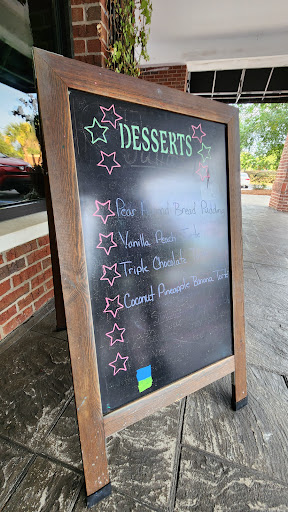 DESSERTS
Pear Bread Pudding
Vanilla Peach
Triple Chocolate
Coconut Pineapple Banana Torte